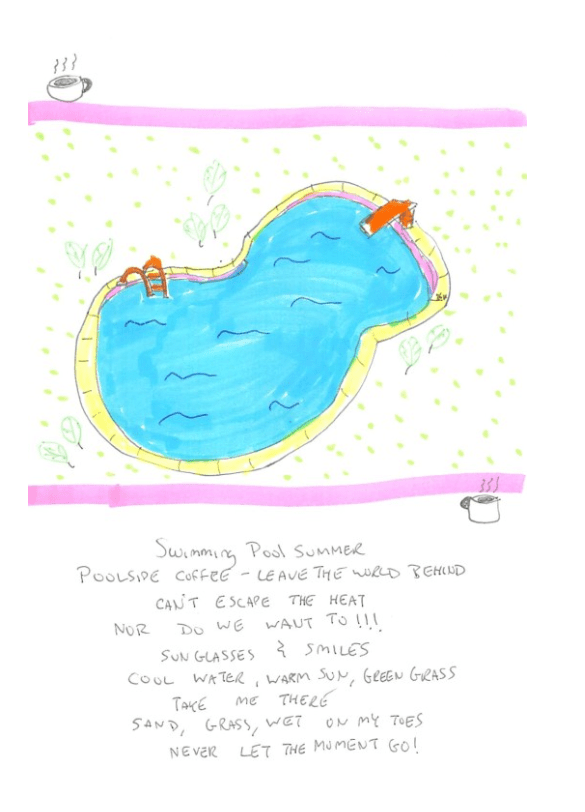 Swimming Pool SUMMER
POOLSIDE COFFEE - LEAVE THE WORLD BEHIND
CAN'T ESCAPE THE HEAT
NOR DO WE WANT TO!!!
SUNGLASSES & SMILES
COOL WATER, WARM SUN, GREEN GRASS
TAKE ME THERE
SAND, GRASS, WET ON MY TOES
NEVER LET THE MOMENT GO!